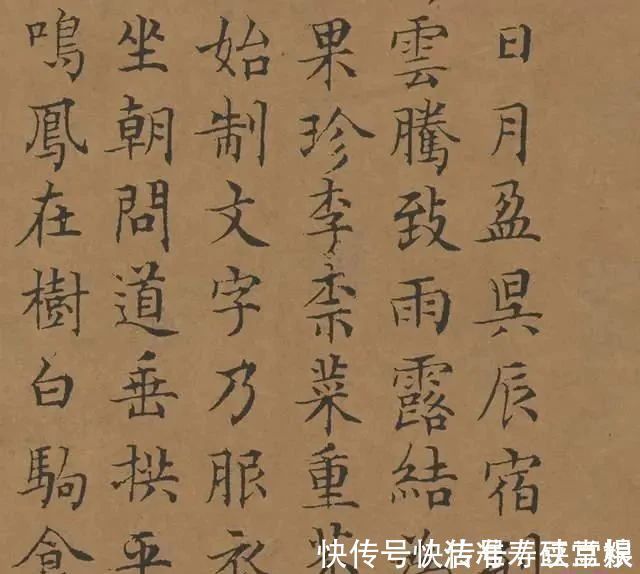 日月盈昃辰宿
雲騰致雨露結
果珍李柰菜重
始制文字乃服衣
坐朝問道垂拱平
鳴鳳在樹白駒食
快传号